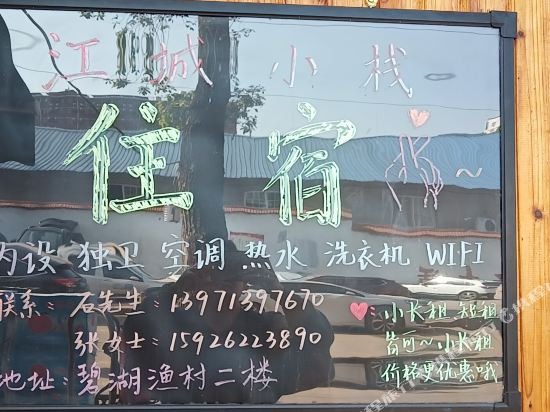 江城小栈
住宿
内设 独卫 空调 热水 洗衣机 WIFI
联系: 石先生: 13971397670
张女士: 15926223890
地址: 碧湖渔村二楼
小长租 短租
皆可~小长租
价格更优惠哦